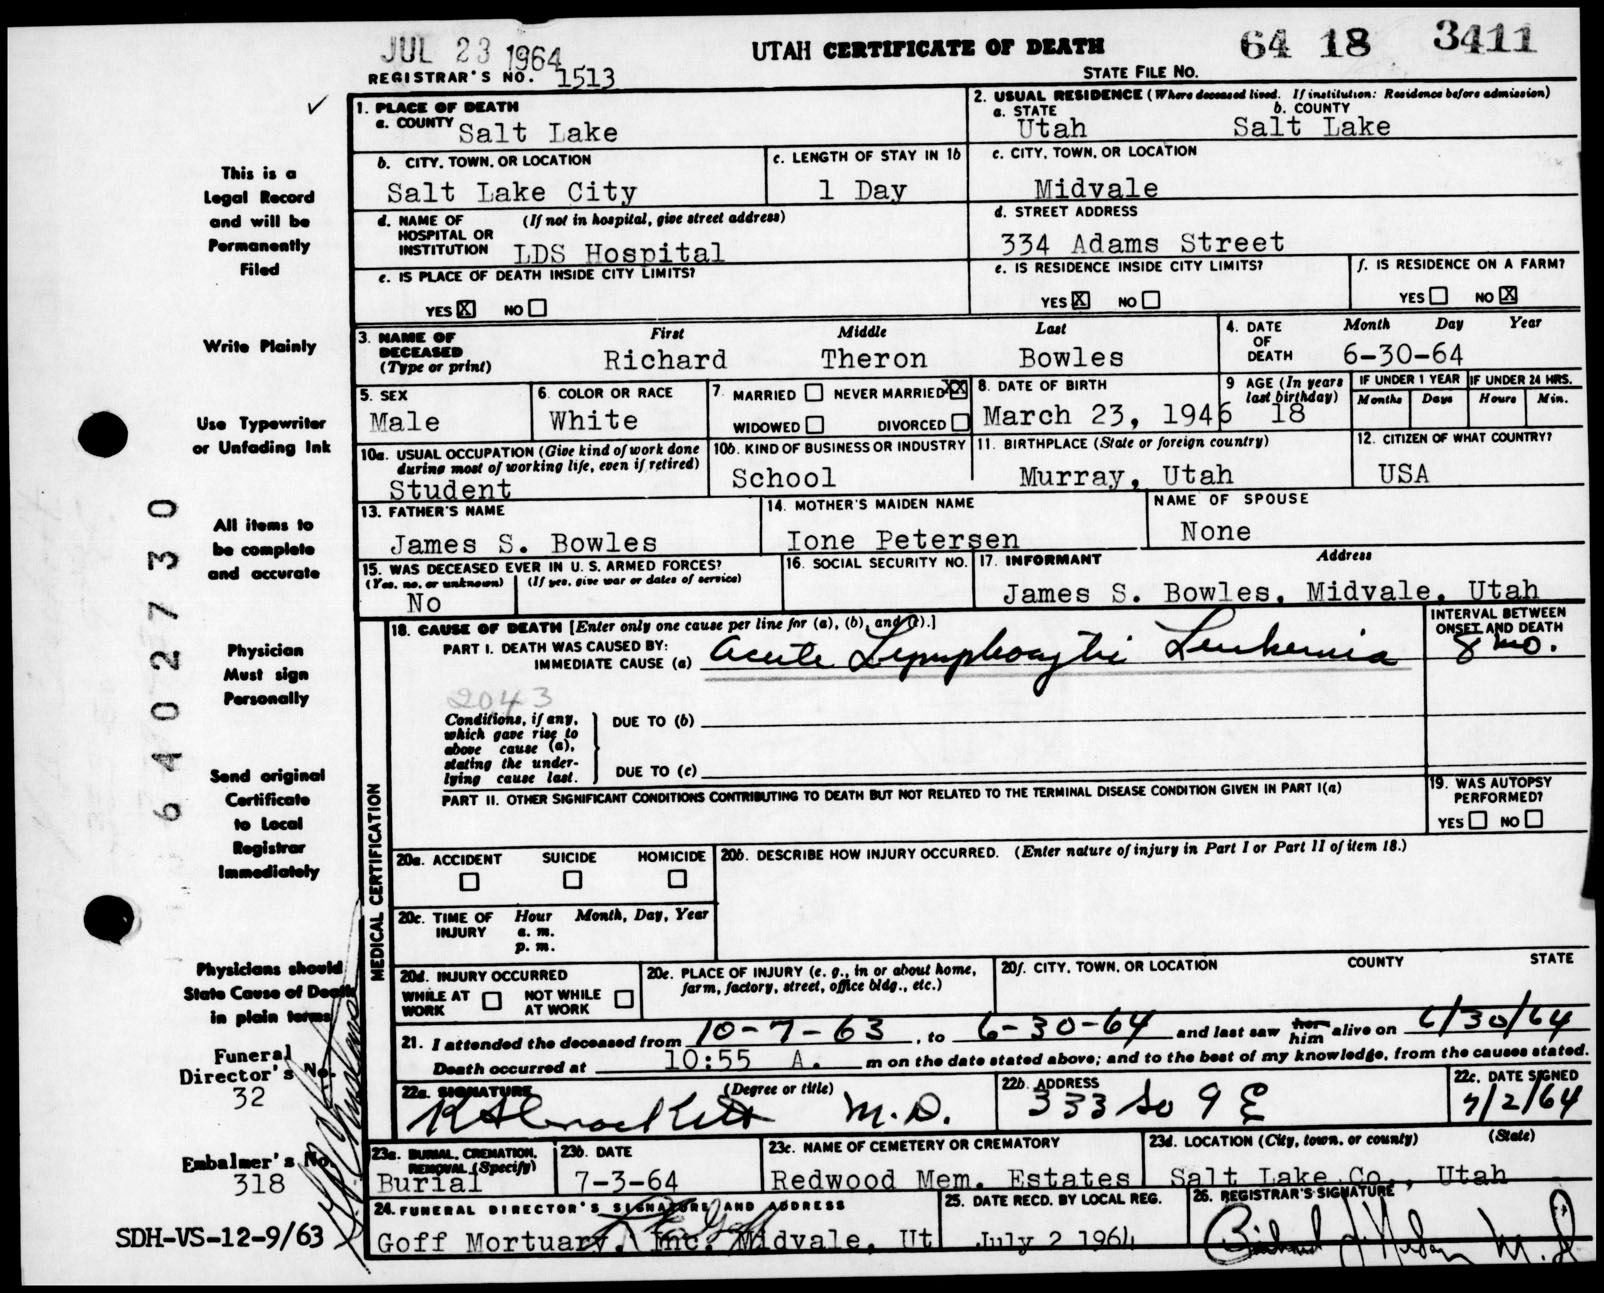 JUL 23 1964
UTAH CERTIFICATE OF DEATH
64 18 3411
REGISTRAR'S NO. 1513
STATE FILE NO.
✓
This is a
Legal Record
and will be
Permanently
Filed
Write Plainly
Use Typewriter
or Unfading Ink
All items to
be complete
and accurate
Physician
Must sign
Personally
Send original
Certificate
to Local
Registrar
Immediately
Physicians should
State Cause of Death
in plain terms
Funeral
Director's No.
32
Embalmer's No.
318
SDH-VS-12-9/63
6402730
1. PLACE OF DEATH
a. COUNTY Salt Lake
2. USUAL RESIDENCE (Where deceased lived. If institution: Residence before admission)
a. STATE Utah b. COUNTY Salt Lake
b. CITY, TOWN, OR LOCATION Salt Lake City
c. LENGTH OF STAY IN 1b 1 Day
c. CITY, TOWN, OR LOCATION Midvale
d. NAME OF HOSPITAL OR INSTITUTION (If not in hospital, give street address) LDS Hospital
d. STREET ADDRESS 334 Adams Street
e. IS PLACE OF DEATH INSIDE CITY LIMITS?
YES X NO
e. IS RESIDENCE INSIDE CITY LIMITS?
YES X NO
f. IS RESIDENCE ON A FARM?
YES NO X
3. NAME OF DECEASED (Type or print)
First Middle Last
Richard Theron Bowles
4. DATE OF DEATH Month Day Year
6-30-64
5. SEX Male
6. COLOR OR RACE White
7. MARRIED NEVER MARRIED XX
WIDOWED DIVORCED
8. DATE OF BIRTH March 23, 1946
9 AGE (In years last birthday) 18
IF UNDER 1 YEAR Months Days
IF UNDER 24 HRS. Hours Min.
10a. USUAL OCCUPATION (Give kind of work done during most of working life, even if retired) Student
10b. KIND OF BUSINESS OR INDUSTRY School
11. BIRTHPLACE (State or foreign country) Murray, Utah
12. CITIZEN OF WHAT COUNTRY? USA
13. FATHER'S NAME James S. Bowles
14. MOTHER'S MAIDEN NAME Ione Petersen
NAME OF SPOUSE None
15. WAS DECEASED EVER IN U. S. ARMED FORCES?
(Yes, no, or unknown) (If yes, give war or dates of service)
No
16. SOCIAL SECURITY NO.
17. INFORMANT Address
James S. Bowles, Midvale, Utah
MEDICAL CERTIFICATION
18. CAUSE OF DEATH [Enter only one cause per line for (a), (b), and (c).]
PART I. DEATH WAS CAUSED BY:
IMMEDIATE CAUSE (a) Acute Lymphocytic Leukemia
INTERVAL BETWEEN ONSET AND DEATH
8 mo.
2043
Conditions, if any, which gave rise to above cause (a), stating the underlying cause last.
DUE TO (b)
DUE TO (c)
PART II. OTHER SIGNIFICANT CONDITIONS CONTRIBUTING TO DEATH BUT NOT RELATED TO THE TERMINAL DISEASE CONDITION GIVEN IN PART I(a)
19. WAS AUTOPSY PERFORMED?
YES NO
20a. ACCIDENT SUICIDE HOMICIDE
20b. DESCRIBE HOW INJURY OCCURRED. (Enter nature of injury in Part I or Part II of item 18.)
20c. TIME OF INJURY Hour Month, Day, Year
a. m.
p. m.
20d. INJURY OCCURRED
WHILE AT WORK NOT WHILE AT WORK
20e. PLACE OF INJURY (e. g., in or about home, farm, factory, street, office bldg., etc.)
20f. CITY, TOWN, OR LOCATION COUNTY STATE
21. I attended the deceased from 10-7-63, to 6-30-64 and last saw her him alive on 6/30/64
Death occurred at 10:55 A. m on the date stated above; and to the best of my knowledge, from the causes stated.
22a. SIGNATURE (Degree or title) M.D.
22b. ADDRESS 333 So 9 E
22c. DATE SIGNED 7/2/64
23a. BURIAL, CREMATION, REMOVAL (Specify) Burial
23b. DATE 7-3-64
23c. NAME OF CEMETERY OR CREMATORY Redwood Mem. Estates
23d. LOCATION (City, town, or county) (State)
Salt Lake Co., Utah
24. FUNERAL DIRECTOR'S SIGNATURE AND ADDRESS
Goff Mortuary, Inc. Midvale, Ut
25. DATE RECD. BY LOCAL REG. July 2 1964
26. REGISTRAR'S SIGNATURE